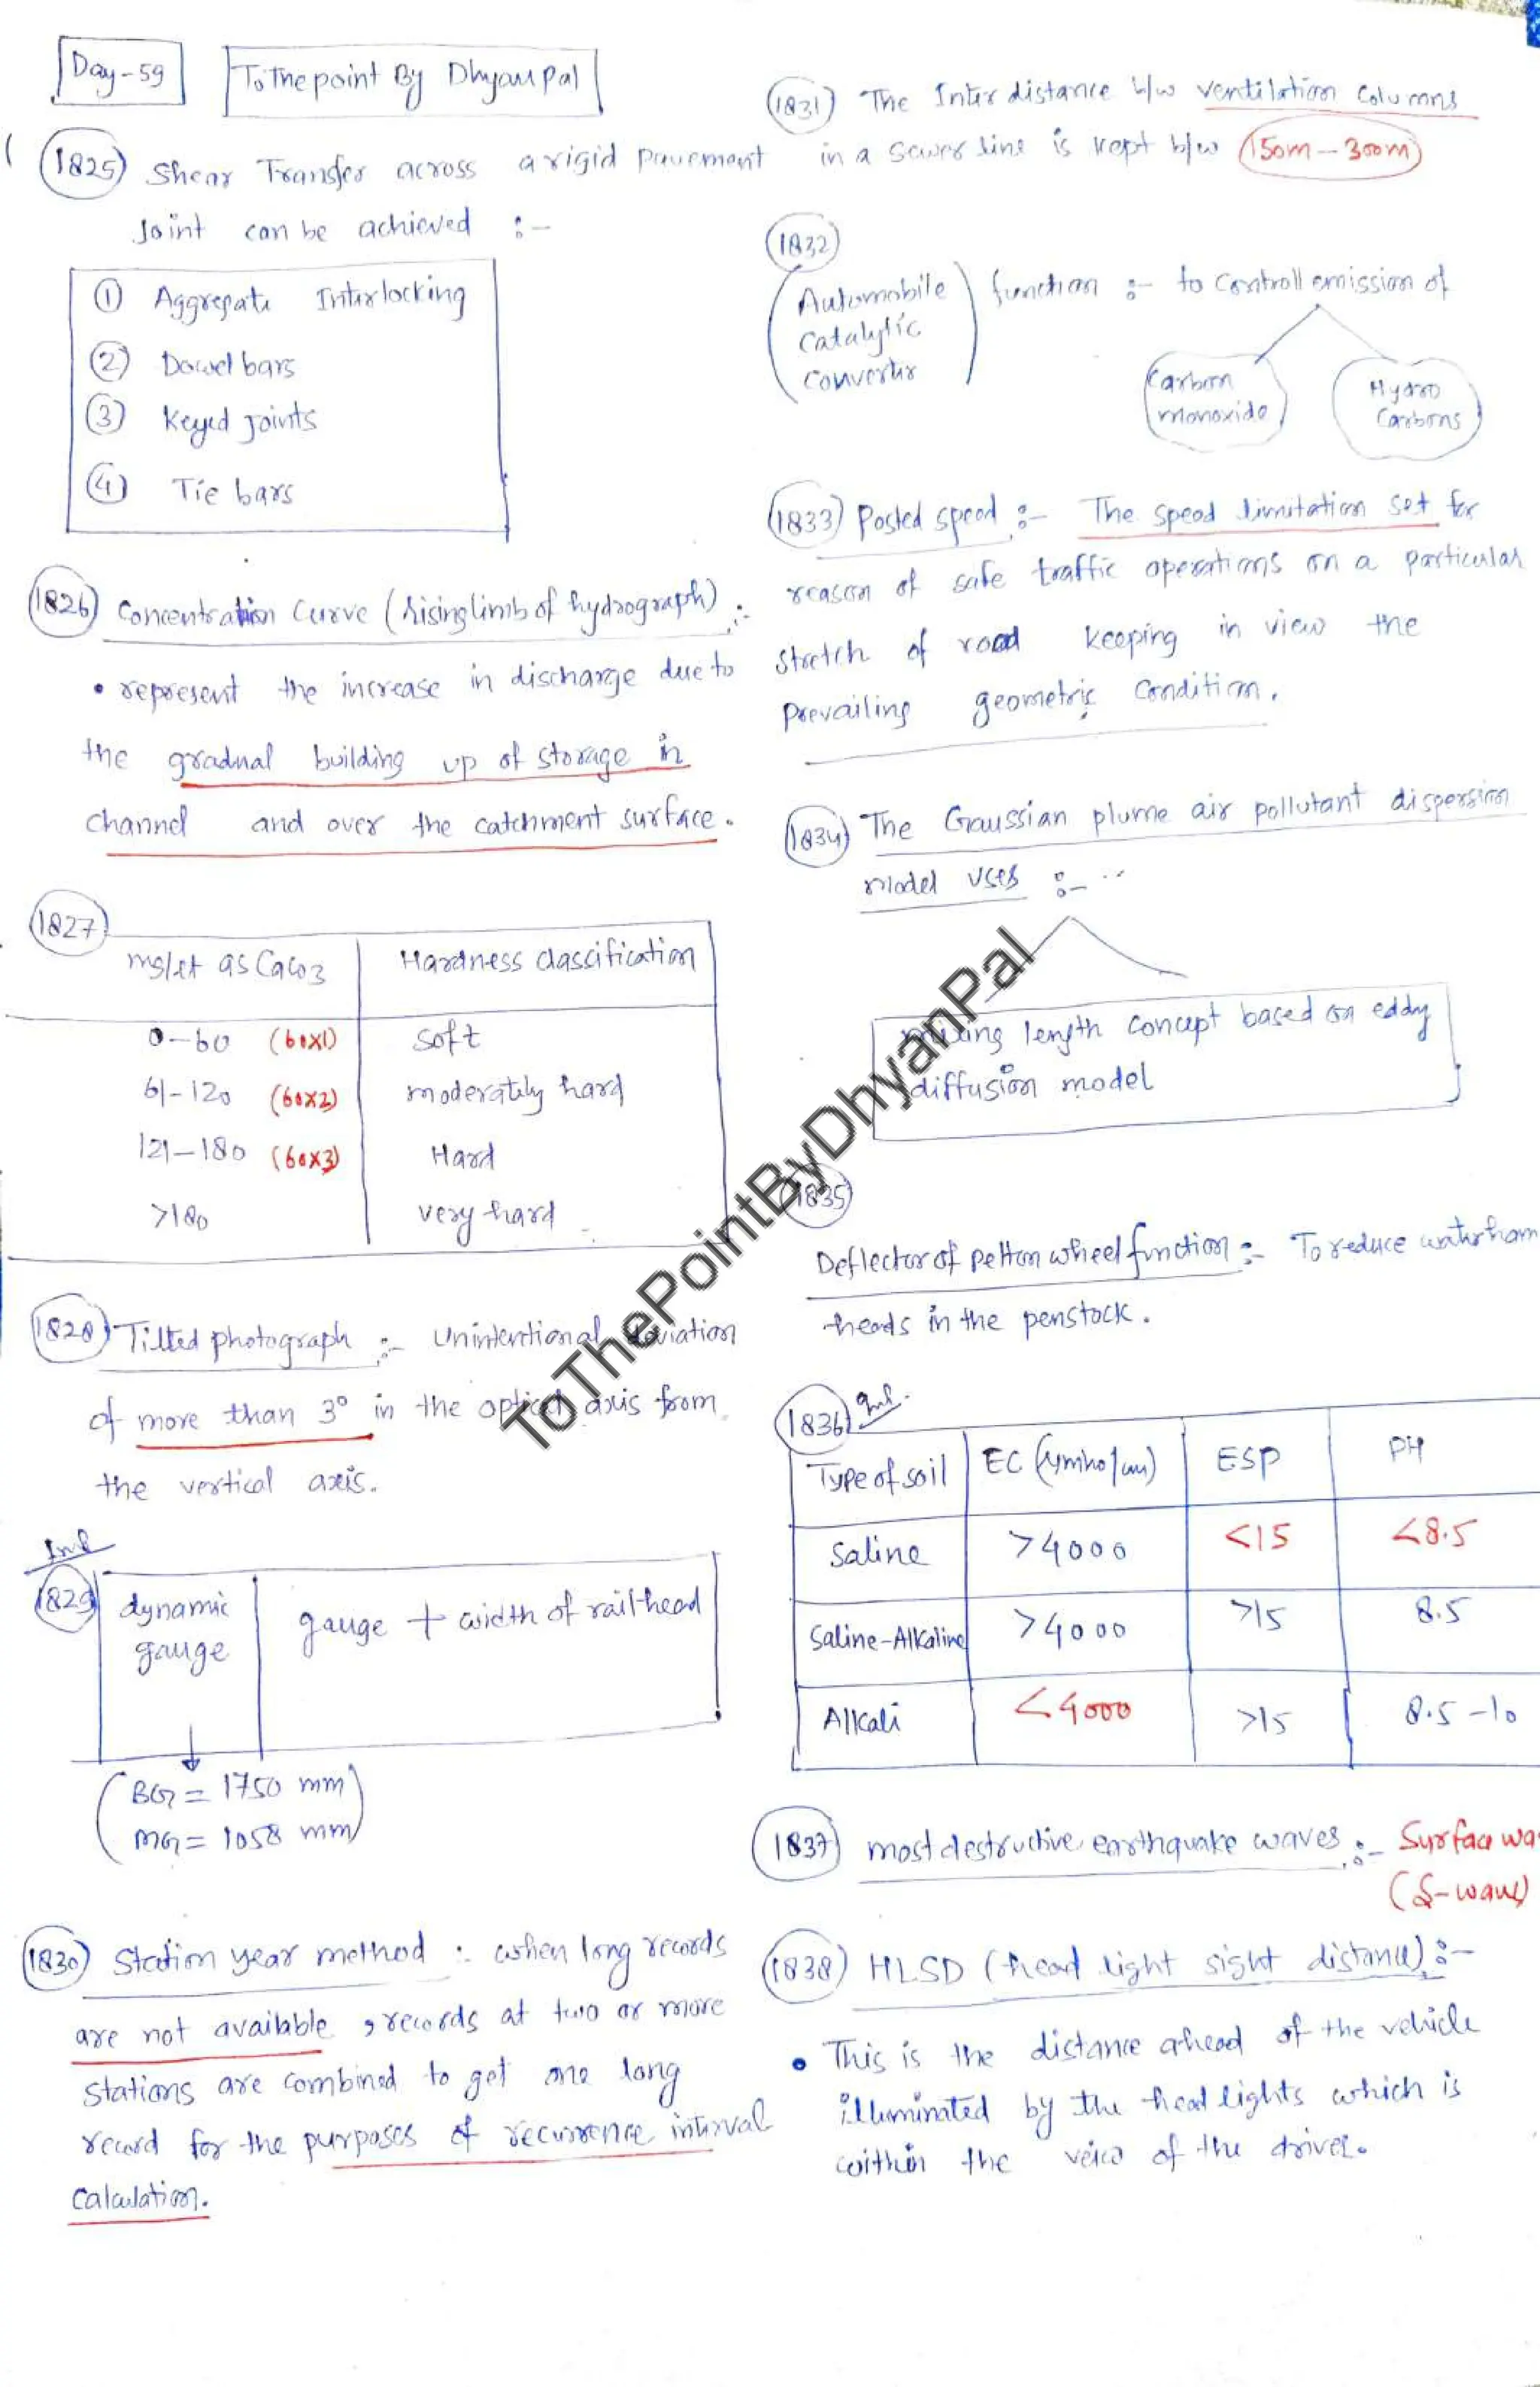 Day-59
ToThepoint By Dhyanpal
1825) Shear Transfer across a rigid pavement
Joint can be achieved :-
① Aggregate Interlocking
② Dowel bars
③ Keyed joints
④ Tie bars
1826) Concentration Curve (Risinglimb of hydrograph) :-
• represent the increase in discharge due to
the gradual building up of storage in
channel and over the catchment surface.
1827)
mg/lt as CaCO3 Hardness classification
0-60 (60x1) soft
61-120 (60x2) moderately hard
121-180 (60x3) Hard
>180 very hard
1828) Tilted photograph :- Unintentional deviation
of more than 3° in the optical axis from
the vertical axis.
Imp
1829 dynamic gauge + width of railhead
gauge
(BG = 1750 mm
MG = 1058 mm)
1830) Station year method :- when long records
are not available, records at two or more
stations are combined to get one long
record for the purposes of recurrence interval
calculation.
1831) The Inter distance b/w ventilation columns
in a sewer line is kept b/w 150m-300m
1832
(Automobile function :- to controll emission of
Catalytic
Converter)
Carbon Hydro
monoxide Carbons
1833) Posted speed :- The speed limitation set for
reason of safe traffic operations on a particular
stretch of road keeping in view the
prevailing geometric condition.
1834) The Gaussian plume air pollutant dispersion
model uses :-
mixing length concept based on eddy
diffusion model
1835)
Deflector of pelton wheel function :- To reduce water ham
heads in the penstock.
1836) Imp.
Type of soil EC (μmho/cm) ESP PH
Saline >4000 <15 <8.5
Saline-Alkaline >4000 >15 8.5
Alkali <4000 >15 8.5-10
1837) most destructive earthquake waves :- Surface wa
(S-wave)
1838) HLSD (head light sight distance) :-
• This is the distance ahead of the vehicle
illuminated by the head lights which is
within the veiw of the driver.
ToThePointByDhyanPal